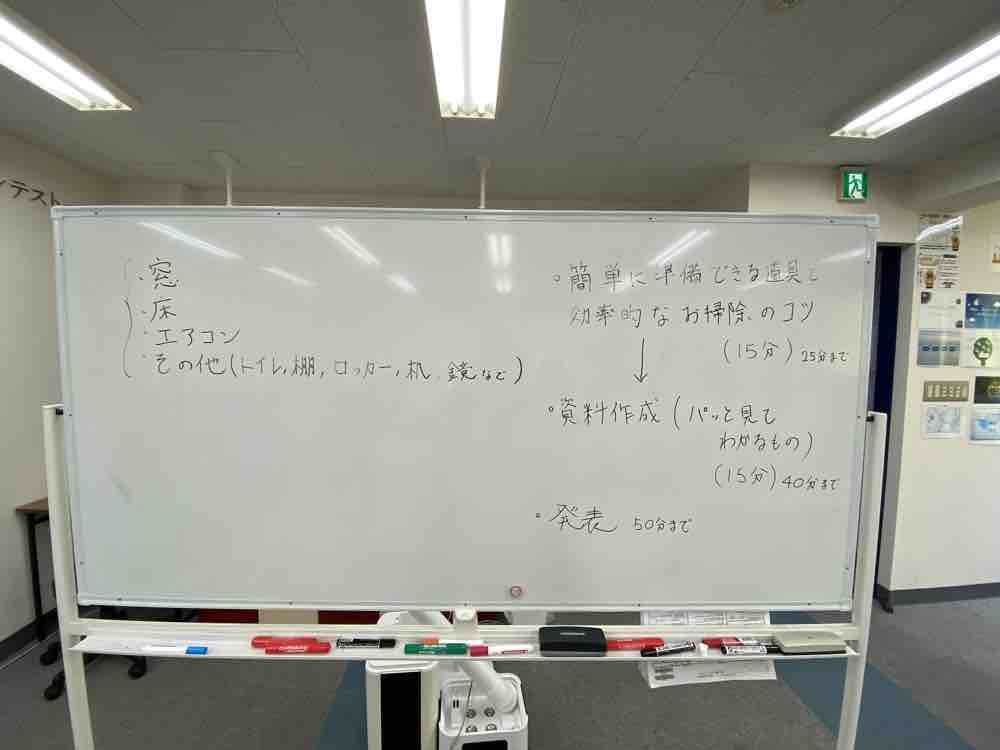 ・窓
・床
・エアコン
・その他(トイレ,棚,ロッカー,机、鏡など)
・簡単に準備できる道具と
効率的なお掃除のコツ
(15分) 25分まで
↓
・資料作成(パッと見て
わかるもの)
(15分) 40分まで
・発表 50分まで
テスト